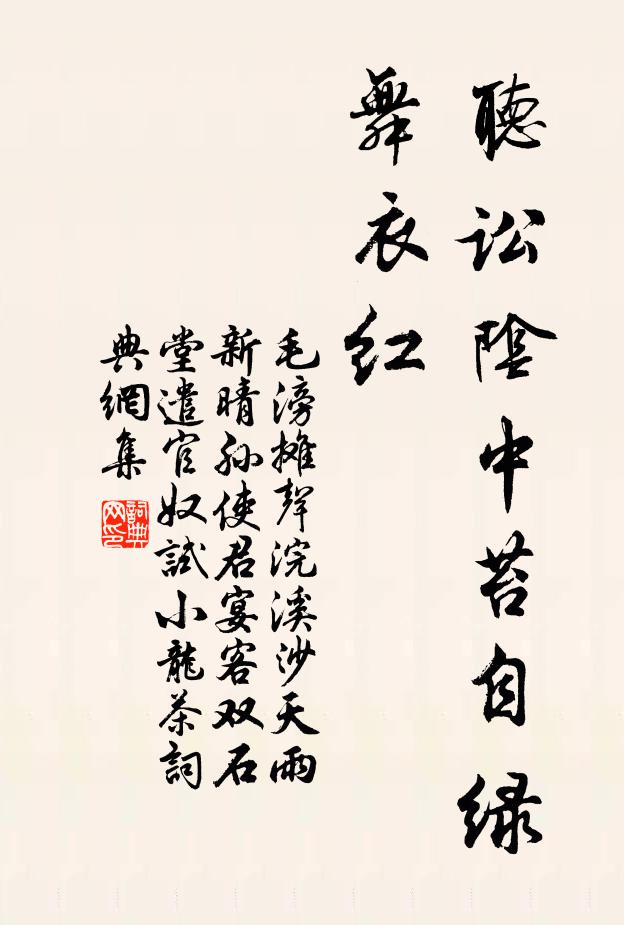 聽訟陰中苔自綠
舞衣紅
毛滂摊聲浣溪沙天雨
新晴孙使君宴客双石
堂遣官奴試小龍茶詞
典網集
詞典
网印